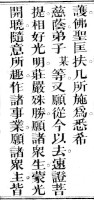 護佛聖囯扶几所施爲悉希
慈蔭弟子某等又願從今以去遠證菩
提相好光明莊嚴殊勝願諸衆生蒙光
開曉隨意所趣作諸事業願諸衆主皆